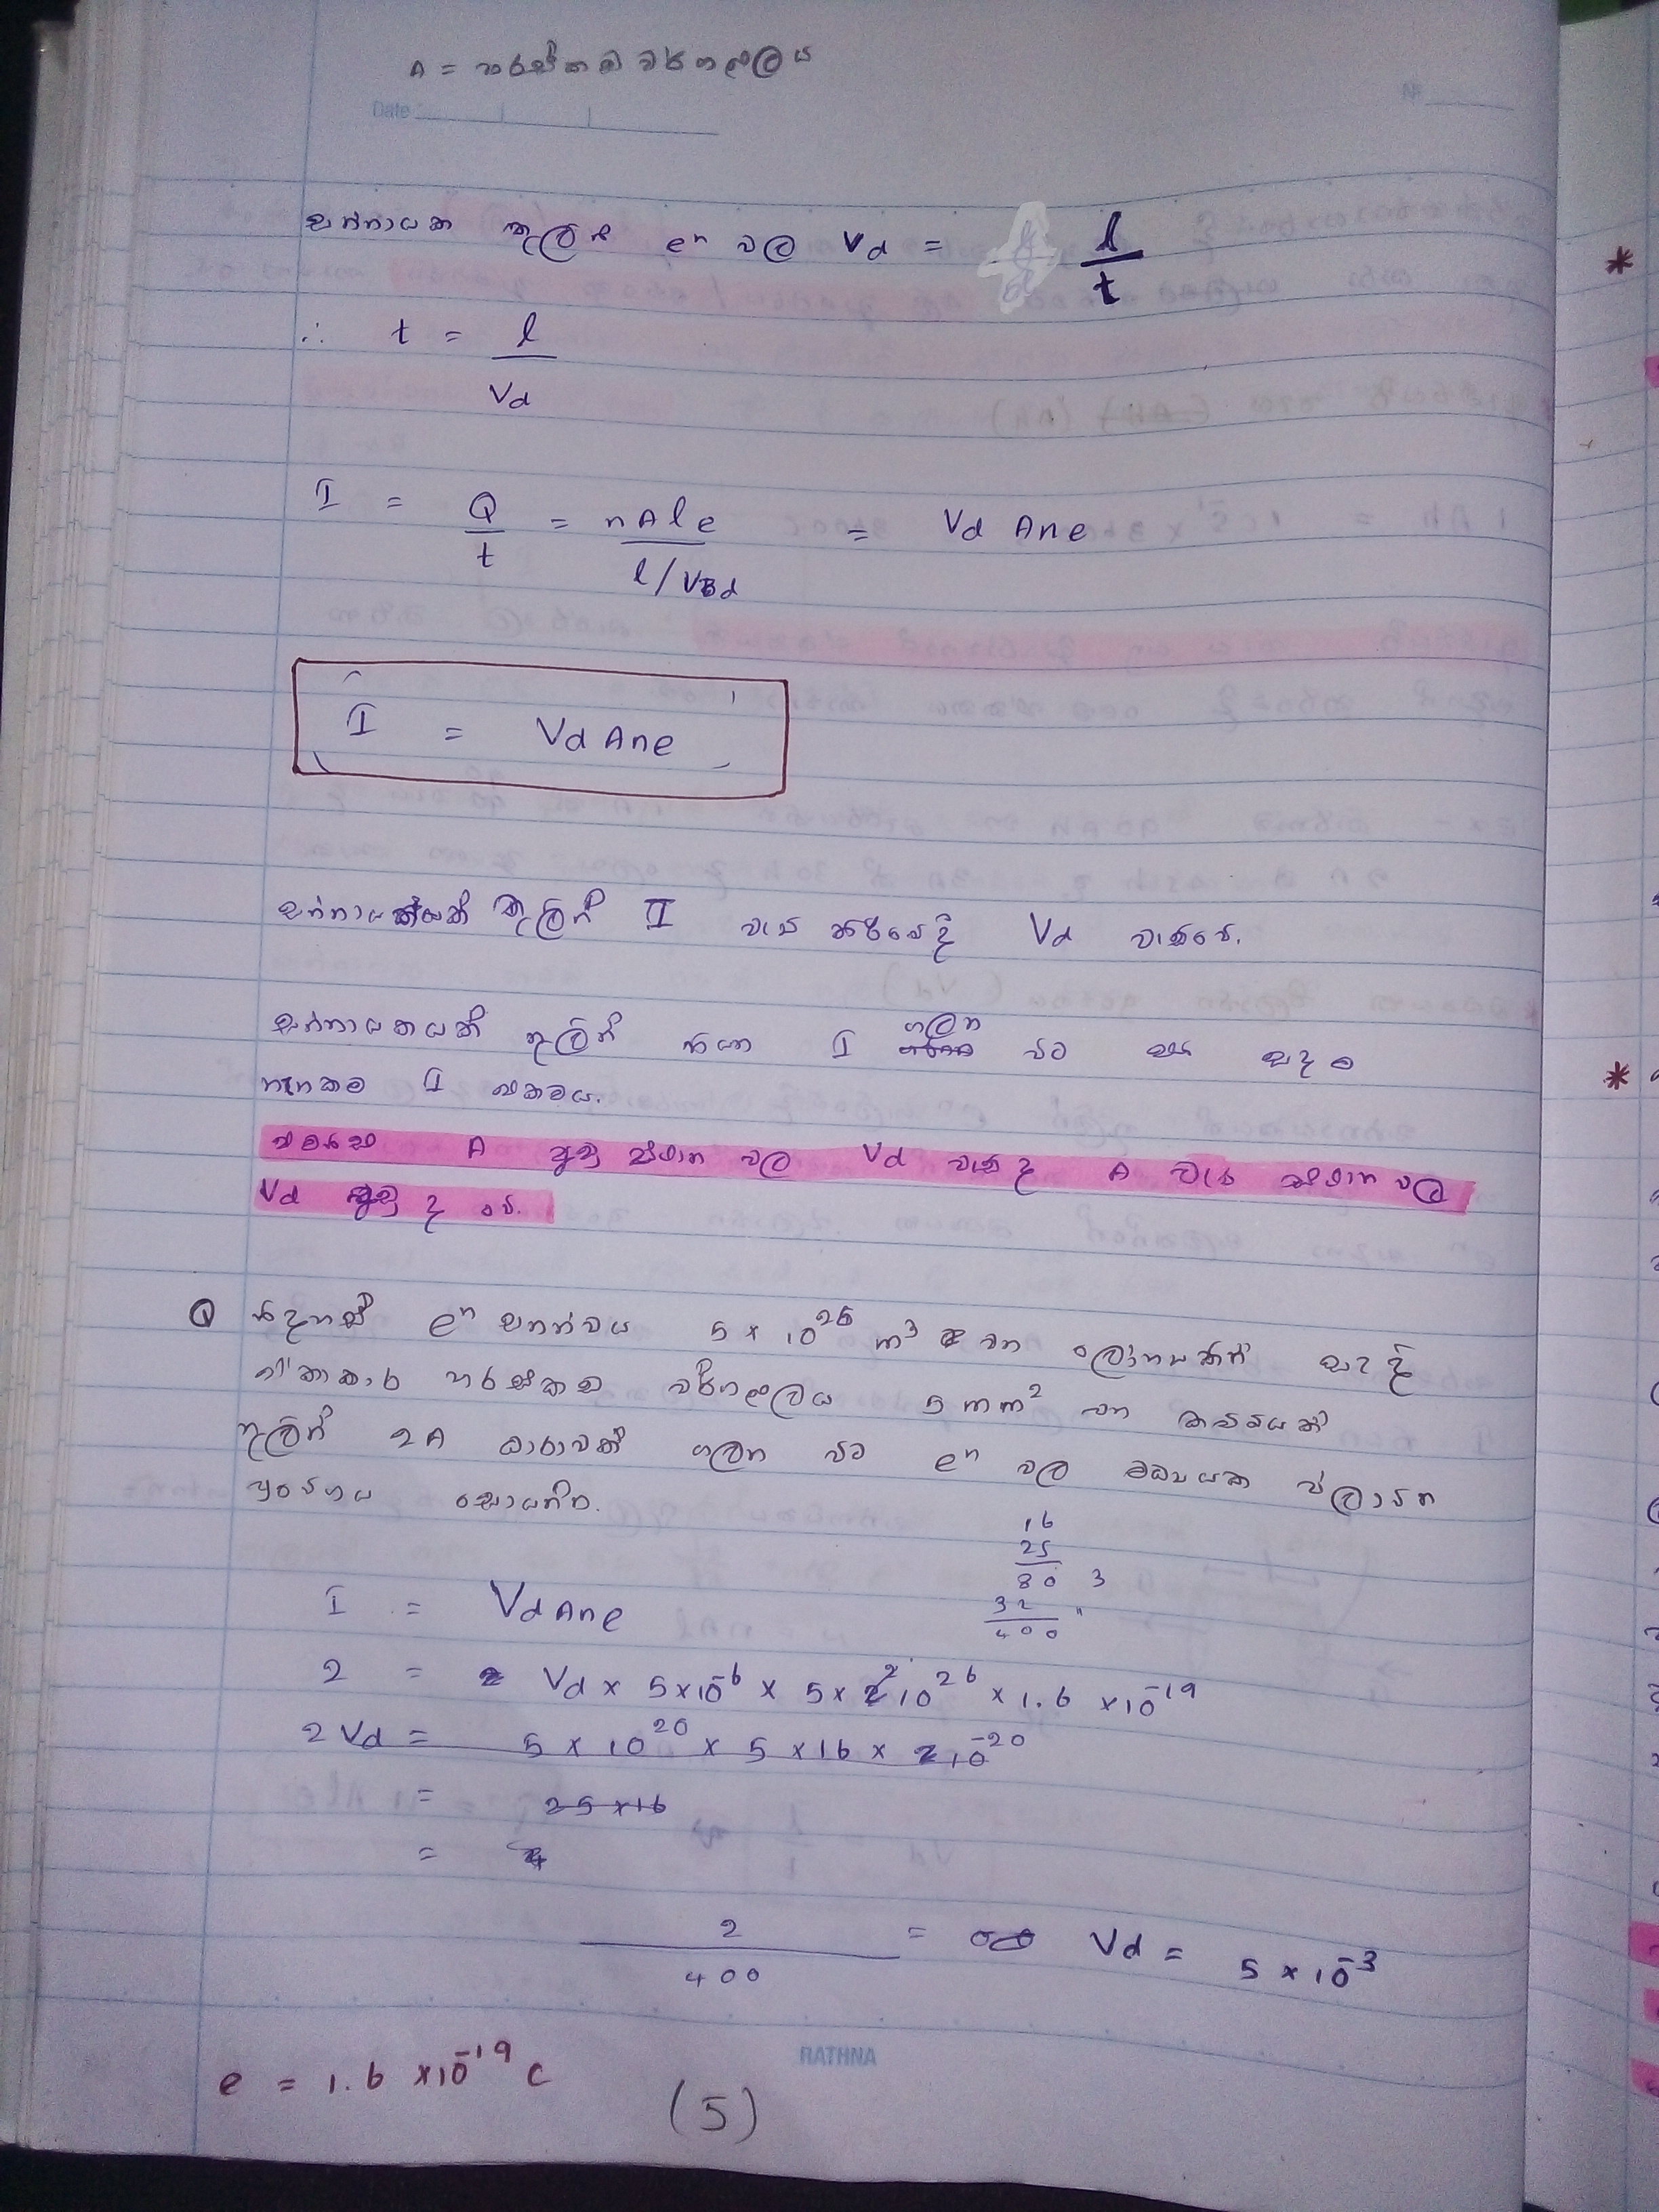 A = හරස්කඩ වර්ගඵලය
Date
සන්නායක තුලින් eⁿ වල Vd = l/t
∴ t = l/Vd
I = Q/t = nAle / l/Vd = Vd Ane
I = Vd Ane
සන්නායකයක් තුලින් I වැඩි කිරීමේදී Vd වැඩිවේ.
සන්නායකයක් තුලින් I ගලන විට සෑ සෑම
තැනකම I එකමය.
එමනිසා A අඩු ස්ථාන වල Vd වැඩි ද A වැඩි ස්ථාන වල
Vd අඩු ද වේ.
Q නිදහස් eⁿ ඝනත්වය 5 × 10²⁶ m³ වන ලෝහයකින් සෑදි
ඒකාකාර හරස්කඩ වර්ගඵලය 5 mm² වන කම්බියක්
තුලින් 2A ධාරාවක් ගලන විට eⁿ වල මධ්‍යයක ප්ලාවිත
ප්‍රවේගය සොයන්න.
16
25
80 3
32 "
400
I = Vd Ane
2 = Vd × 5×10⁻⁶ × 5 × 10²⁶ × 1.6 × 10⁻¹⁹
2 Vd = 5 × 10²⁰ × 5 × 16 × 10⁻²⁰
= 25 × 16
=
2/400 = Vd = 5 × 10⁻³
RATHNA
e = 1.6 × 10⁻¹⁹ C
(5)